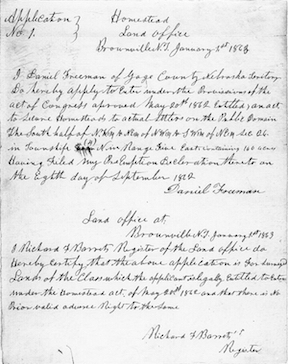 Application } Homestead
No 1. } Land Office
Brownville N.T. January 1st 1863
I Daniel Freeman of Gage County Nebraska Territory
Do hereby apply to Enter under the Provisions of the
act of Congress aproved May 20th 1862 Entitled, an act
to Secure Homesteads to actual Settlers on the Public Domain
The South half of N.W ¼ & N.E ¼ of N.W ¼ & S.W ¼ of N.E ¼ Sec. 26.
in Township (4) N in Range Five East. containing 160 acres
Having Filed my Pre Emption Declaration thereto on
the Eighth day of September 1862
Daniel Freeman
Land office at
Brownville N.T. January 1st 1863
I Richard F Barrett Register of the Land office do
Hereby certify that the above application is For Surveyed
Lands of the Class which the applicant is legally Entitled to Enter
under the Homestead act of May 20th 1862 and that there is No
Prior valid adverse Right to the Same
Richard F Barrett
Register